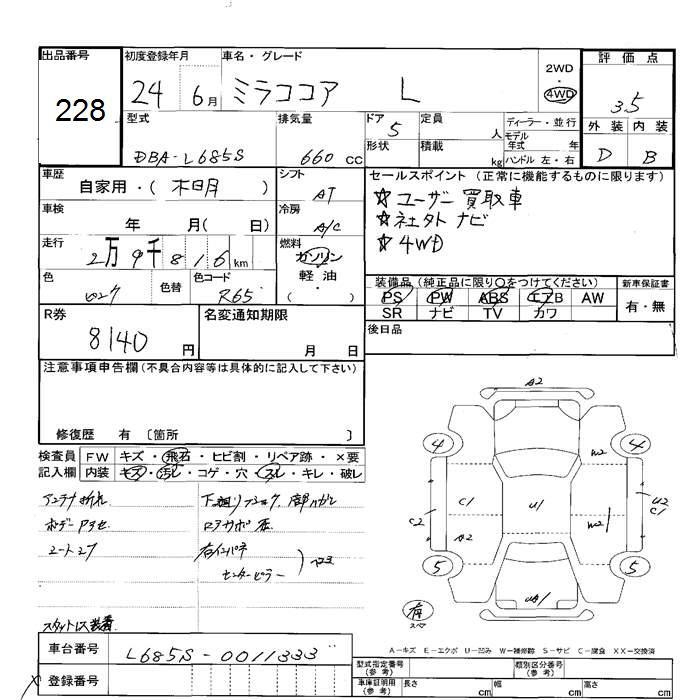 出品番号
228
初度登録年月
24 6月
車名・グレード
ミラココア L
2WD・
4WD
評価点
3.5
型式
DBA-L685S
排気量
660 CC
ドア
5
定員
人
ディーラー・並行
モデル
年式 年
形状
積載
kg
ハンドル 左・右
外装 内装
D B
車歴
自家用・( )
シフト
AT
セールスポイント (正常に機能するものに限ります)
☆ユーザー買取車
☆社外ナビ
☆4WD
車検
年 月( 日)
冷房
A/C
走行
2万9千816km
燃料
ガソリン
軽油
( )
色
色替
色コード
R65
装備品(純正品に限り○をつけてください)
PS PW ABS エアB AW
SR ナビ TV カワ
新車保証書
有・無
R券
8140円
名変通知期限
月 日
後日品
注意事項申告欄(不具合内容等は具体的に記入して下さい)
修復歴 有 〔箇所 〕
検査員
記入欄
FW キズ・飛石・ヒビ割・リペア跡・×要
内装 キズ・汚レ・コゲ・穴・スレ・キレ・破レ
アンテナ折れ
ボデーPアセ
スタットレス装着
A2
4 4
W2
C1 U1 W2
C2 U2
C1
A2
5 5
UA1
有
スペア
A－キズ E－エクボ U－凹み W－補修跡 S－サビ C－腐食 XX－交換済
車台番号
L685S-0011333
登録番号
型式指定番号
(参考)
類別区分番号
(参考)
車庫証明用
(参考)
長さ cm 幅 cm 高さ cm